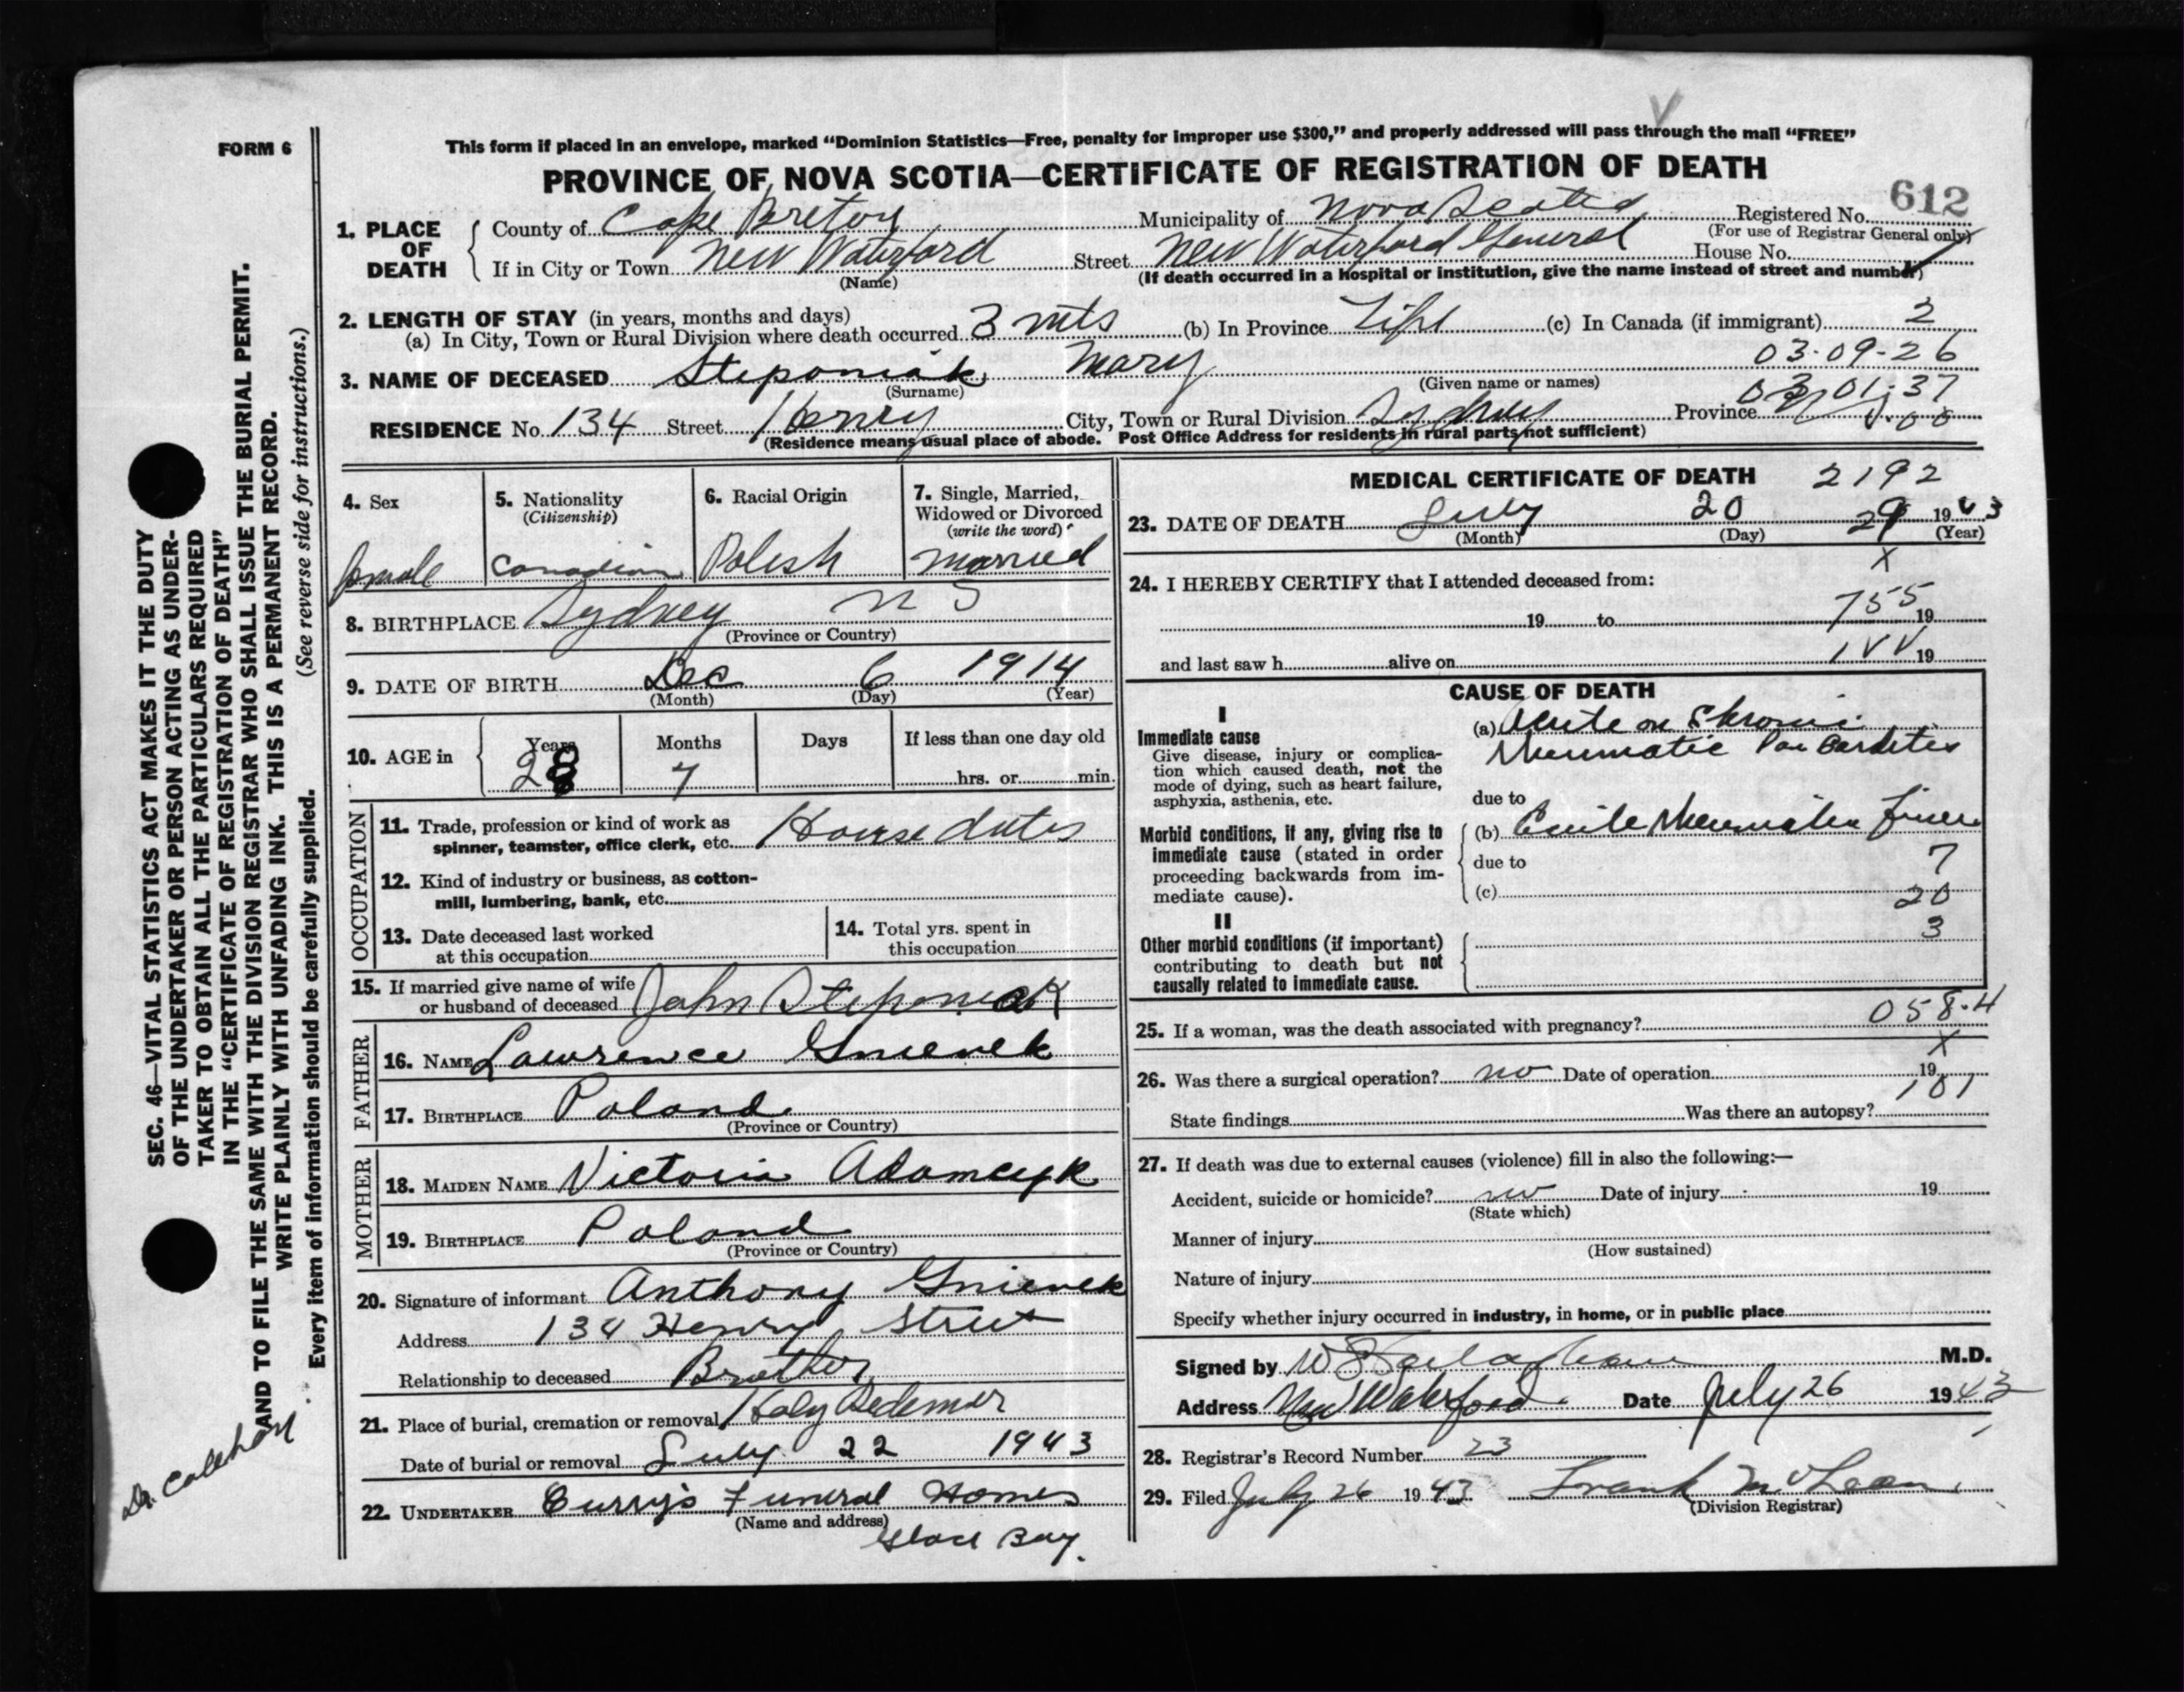 FORM 6
This form if placed in an envelope, marked “Dominion Statistics—Free, penalty for improper use $300,” and properly addressed will pass through the mail “FREE”
PROVINCE OF NOVA SCOTIA—CERTIFICATE OF REGISTRATION OF DEATH
612
1. PLACE OF DEATH
County of Cape Breton Municipality of Nova Scotia Registered No.
(For use of Registrar General only)
If in City or Town New Waterford Street New Waterford General House No.
(Name) (If death occurred in a hospital or institution, give the name instead of street and number)
2. LENGTH OF STAY (in years, months and days)
(a) In City, Town or Rural Division where death occurred 3 mts (b) In Province Life (c) In Canada (if immigrant) 2
03-09-26
3. NAME OF DECEASED Steponiak Mary
(Surname) (Given name or names)
03 01-37
RESIDENCE No. 134 Street Henry City, Town or Rural Division Sydney Province
(Residence means usual place of abode. Post Office Address for residents in rural parts not sufficient)
4. Sex female
5. Nationality (Citizenship) Canadian
6. Racial Origin Polish
7. Single, Married, Widowed or Divorced (write the word) married
8. BIRTHPLACE Sydney N S
(Province or Country)
9. DATE OF BIRTH Dec 6 1914
(Month) (Day) (Year)
10. AGE in Years Months Days If less than one day old
28 7 hrs. or min.
OCCUPATION
11. Trade, profession or kind of work as
spinner, teamster, office clerk, etc. House duties
12. Kind of industry or business, as cotton-
mill, lumbering, bank, etc.
13. Date deceased last worked
at this occupation
14. Total yrs. spent in
this occupation
15. If married give name of wife
or husband of deceased John Steponiak
FATHER
16. NAME Lawrence Gnienek
17. BIRTHPLACE Poland
(Province or Country)
MOTHER
18. MAIDEN NAME Victoria Adamczyk
19. BIRTHPLACE Poland
(Province or Country)
20. Signature of informant Anthony Gnienek
Address 134 Henry Street
Relationship to deceased Brother
21. Place of burial, cremation or removal Holy Redemer
Date of burial or removal July 22 1943
22. UNDERTAKER Curry's Funeral Homes
(Name and address)
Glace Bay.
MEDICAL CERTIFICATE OF DEATH 2192
23. DATE OF DEATH July 20 29 1943
(Month) (Day) (Year)
X
24. I HEREBY CERTIFY that I attended deceased from:
755
19 to 19
and last saw h alive on 19
CAUSE OF DEATH
I
Immediate cause
Give disease, injury or complica-
tion which caused death, not the
mode of dying, such as heart failure,
asphyxia, asthenia, etc.
(a) Acute on Chronic
Rheumatic Pan Carditis
due to
Morbid conditions, if any, giving rise to
immediate cause (stated in order
proceeding backwards from im-
mediate cause).
(b) Acute Rheumatic Fever
due to 7
(c) 20
II
Other morbid conditions (if important)
contributing to death but not
causally related to immediate cause.
3
058.4
25. If a woman, was the death associated with pregnancy?
X
26. Was there a surgical operation? no Date of operation 19
101
State findings Was there an autopsy?
27. If death was due to external causes (violence) fill in also the following:—
Accident, suicide or homicide? no Date of injury 19
(State which)
Manner of injury
(How sustained)
Nature of injury
Specify whether injury occurred in industry, in home, or in public place
Signed by M.D.
Address New Waterford Date July 26 1943
28. Registrar's Record Number 23
29. Filed July 26 1943 Frank McLean
(Division Registrar)
SEC. 46—VITAL STATISTICS ACT MAKES IT THE DUTY
OF THE UNDERTAKER OR PERSON ACTING AS UNDER-
TAKER TO OBTAIN ALL THE PARTICULARS REQUIRED
IN THE “CERTIFICATE OF REGISTRATION OF DEATH”
AND TO FILE THE SAME WITH THE DIVISION REGISTRAR WHO SHALL ISSUE THE BURIAL PERMIT.
WRITE PLAINLY WITH UNFADING INK. THIS IS A PERMANENT RECORD.
Every item of information should be carefully supplied. (See reverse side for instructions.)
Dr. Calehan